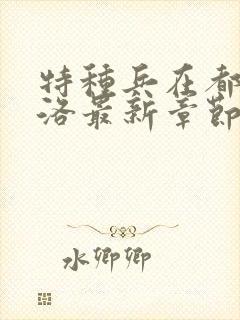 特種兵在都
洛最新章節
水卿卿